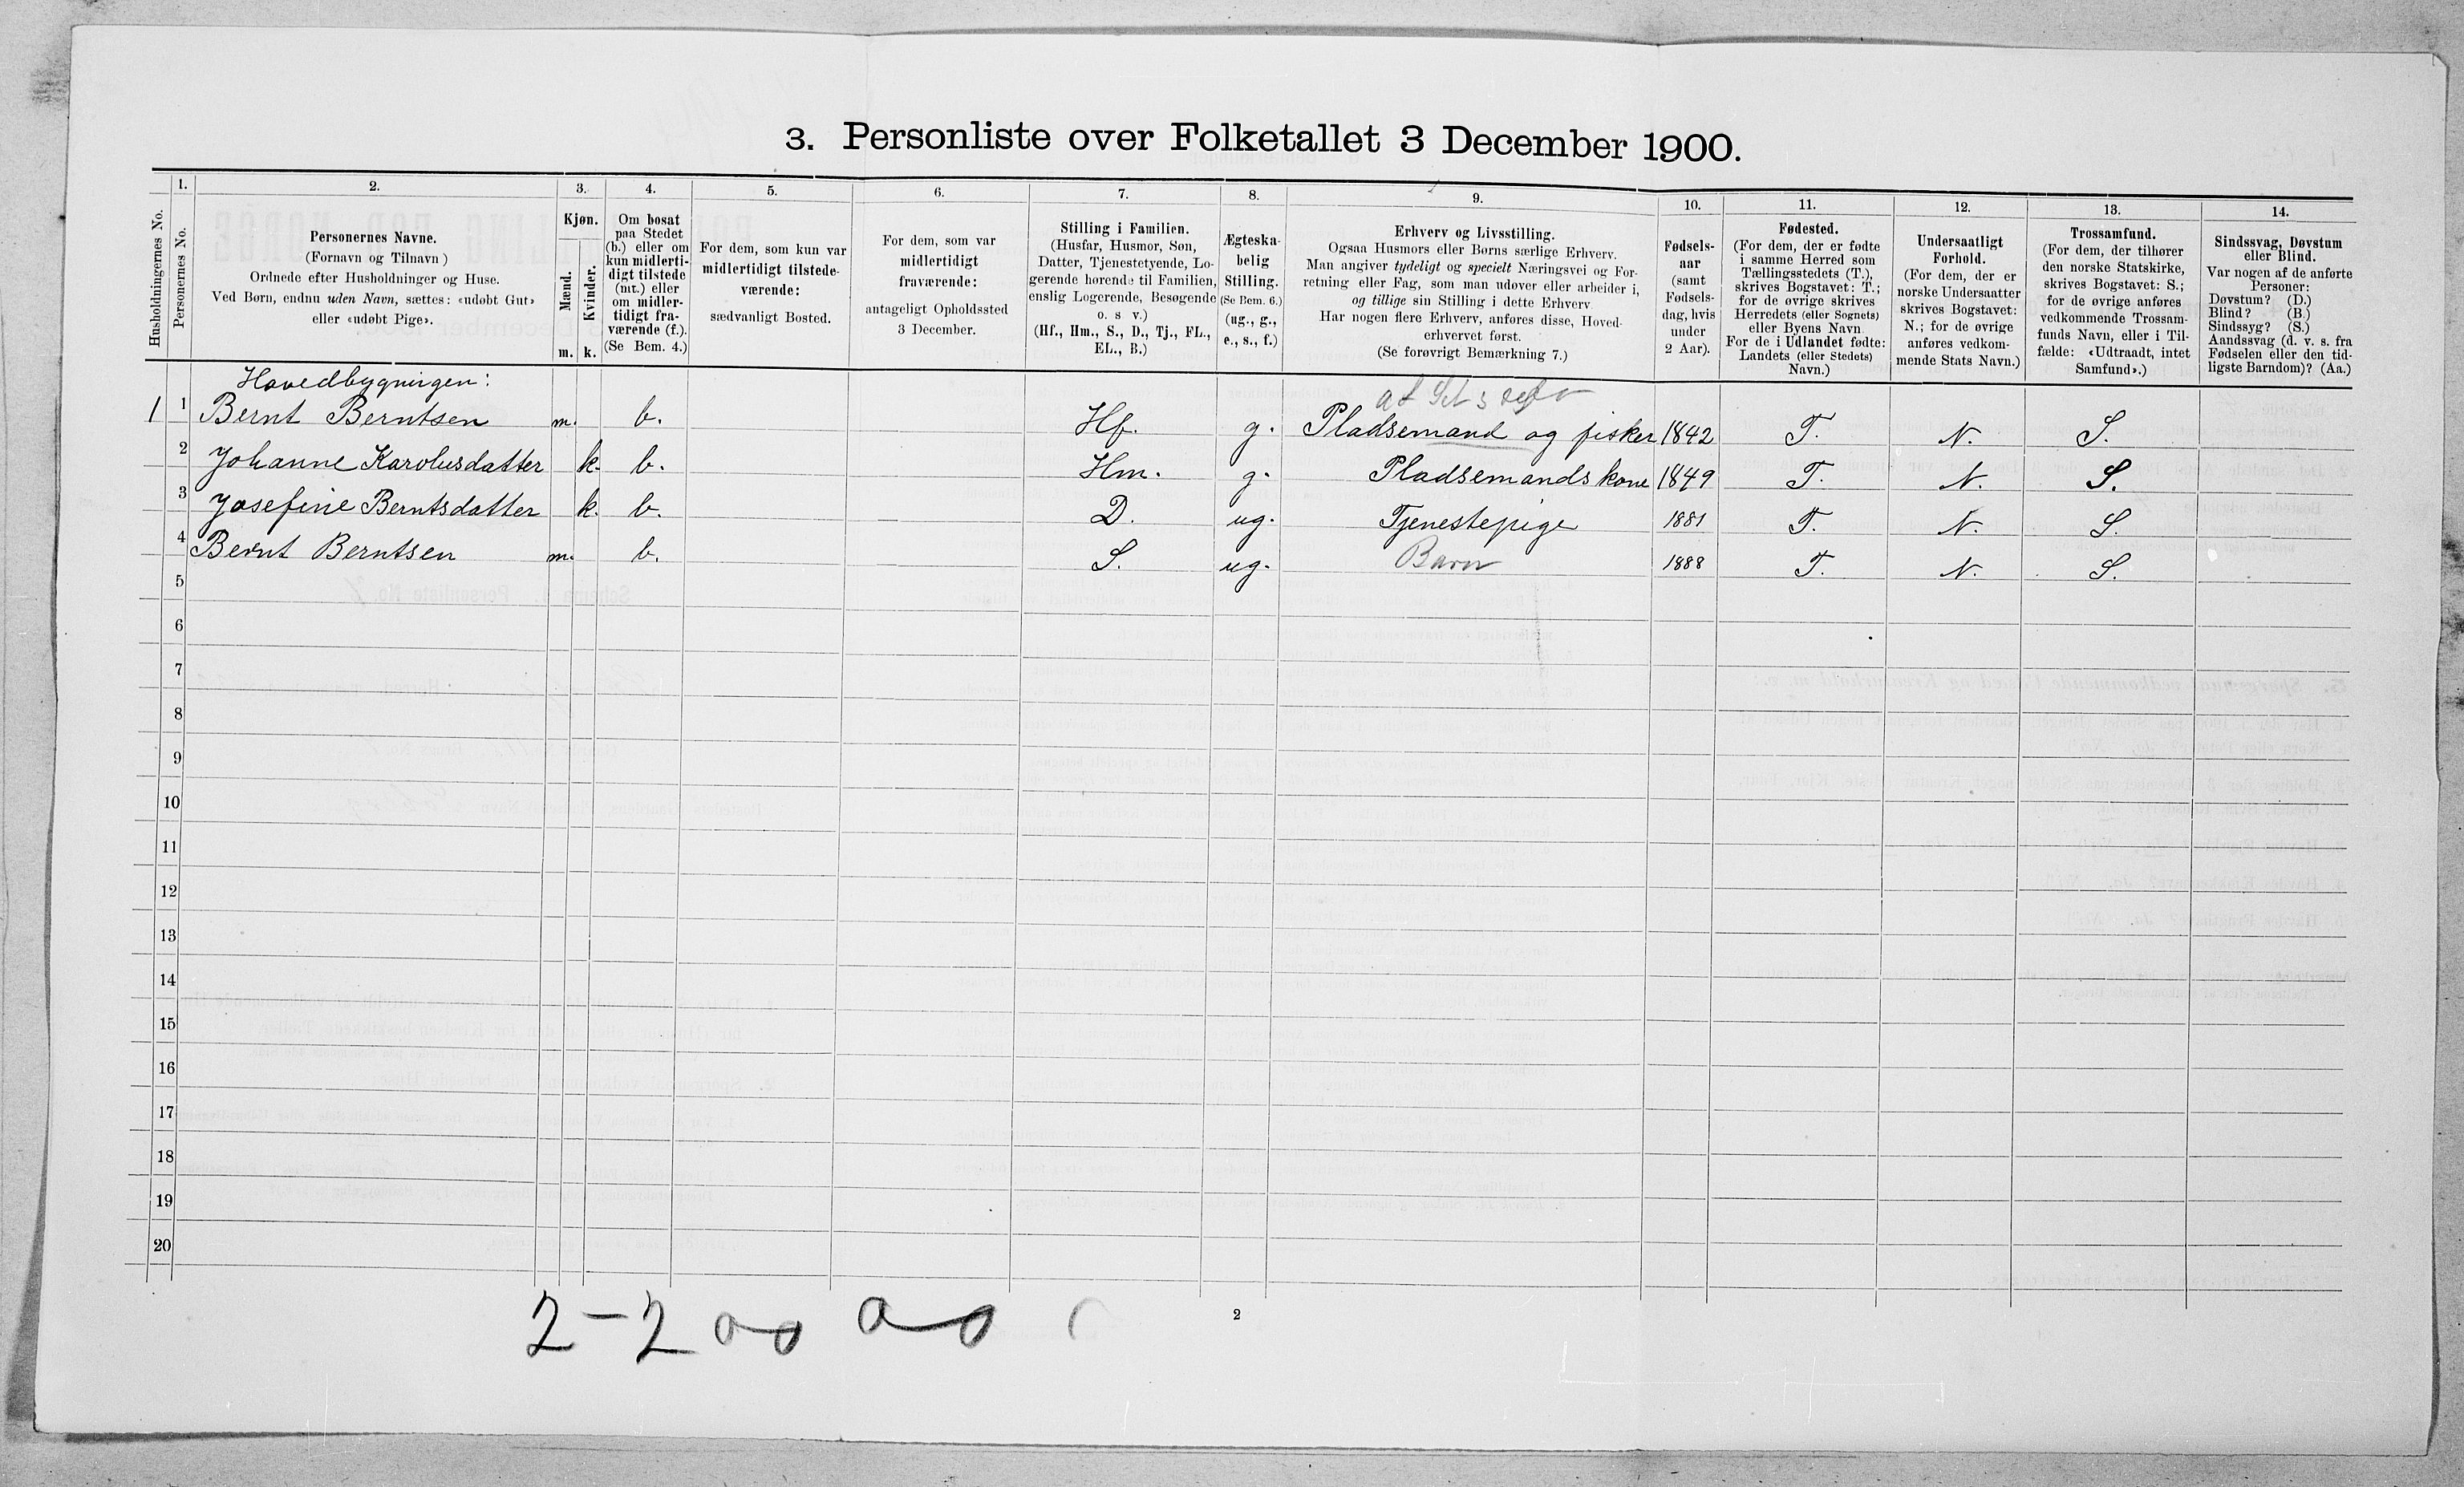 3. Personliste over Folketallet 3 December 1900.
Husholdningernes No.
1.
Personernes No.
2.
Personernes Navne.
(Fornavn og Tilnavn)
Ordnede efter Husholdninger og Huse.
Ved Børn, endnu uden Navn, sættes: «udøbt Gut»
eller «udøbt Pige».
3.
Kjøn.
Mænd.
Kvinder.
m.
k.
4.
Om bosat
paa Stedet
(b.) eller om
kun midlerti-
digt tilstede
(mt.) eller
om midler-
tidigt fra-
værende (f.).
(Se Bem. 4.)
5.
For dem, som kun var
midlertidigt tilstede-
værende:
sædvanligt Bosted.
6.
For dem, som var
midlertidigt
fraværende:
antageligt Opholdssted
3 December.
7.
Stilling i Familien.
(Husfar, Husmor, Søn,
Datter, Tjenestetyende, Lo-
gerende hørende til Familien,
enslig Logerende, Besøgende
o. s v.)
(Hf., Hm., S., D., Tj., FL.,
EL., B.)
8.
Ægteska-
belig
Stilling.
(Se Bem. 6.)
(ug., g.,
e., s., f.)
9.
Erhverv og Livsstilling.
Ogsaa Husmors eller Børns særlige Erhverv.
Man angiver tydeligt og specielt Næringsvei og For-
retning eller Fag, som man udøver eller arbeider i,
og tillige sin Stilling i dette Erhverv.
Har nogen flere Erhverv, anføres disse, Hoved-
erhvervet først.
(Se forøvrigt Bemærkning 7.)
10.
Fødsels-
aar
(samt
Fødsels-
dag, hvis
under
2 Aar).
11.
Fødested.
(For dem, der er fødte
i samme Herred som
Tællingsstedets (T.),
skrives Bogstavet: T.;
for de øvrige skrives
Herredets (eller Sognets)
eller Byens Navn.
For de i Udlandet fødte:
Landets (eller Stedets)
Navn.)
12.
Undersaatligt
Forhold.
(For dem, der er
norske Undersaatter
skrives Bogstavet:
N.; for de øvrige
anføres vedkom-
mende Stats Navn.)
13.
Trossamfund.
(For dem, der tilhører
den norske Statskirke,
skrives Bogstavet: S.;
for de øvrige anføres
vedkommende Trossam-
funds Navn, eller i Til-
fælde: «Udtraadt, intet
Samfund».)
14.
Sindssvag, Døvstum
eller Blind.
Var nogen af de anførte
Personer:
Døvstum? (D.)
Blind? (B.)
Sindssyg? (S.)
Aandssvag (d. v. s. fra
Fødselen eller den tid-
ligste Barndom)? (Aa.)
Hovedbygningen:
1 1 Bernt Berntsen m. b. Hf. g. Pladsemand og fisker 1842 T. N. S.
2 Johanne Karolusdatter k. b. Hm. g. Pladsemands kone 1849 T. N. S.
3 Josefine Berntsdatter k. b. D. ug. Tjenestepige 1881 T. N. S.
4 Bernt Berntsen m. b. S. ug. Barn 1888 T. N. S.
5
6
7
8
9
10
11
12
13
14
15
16
17
18
19
20
2-2
2